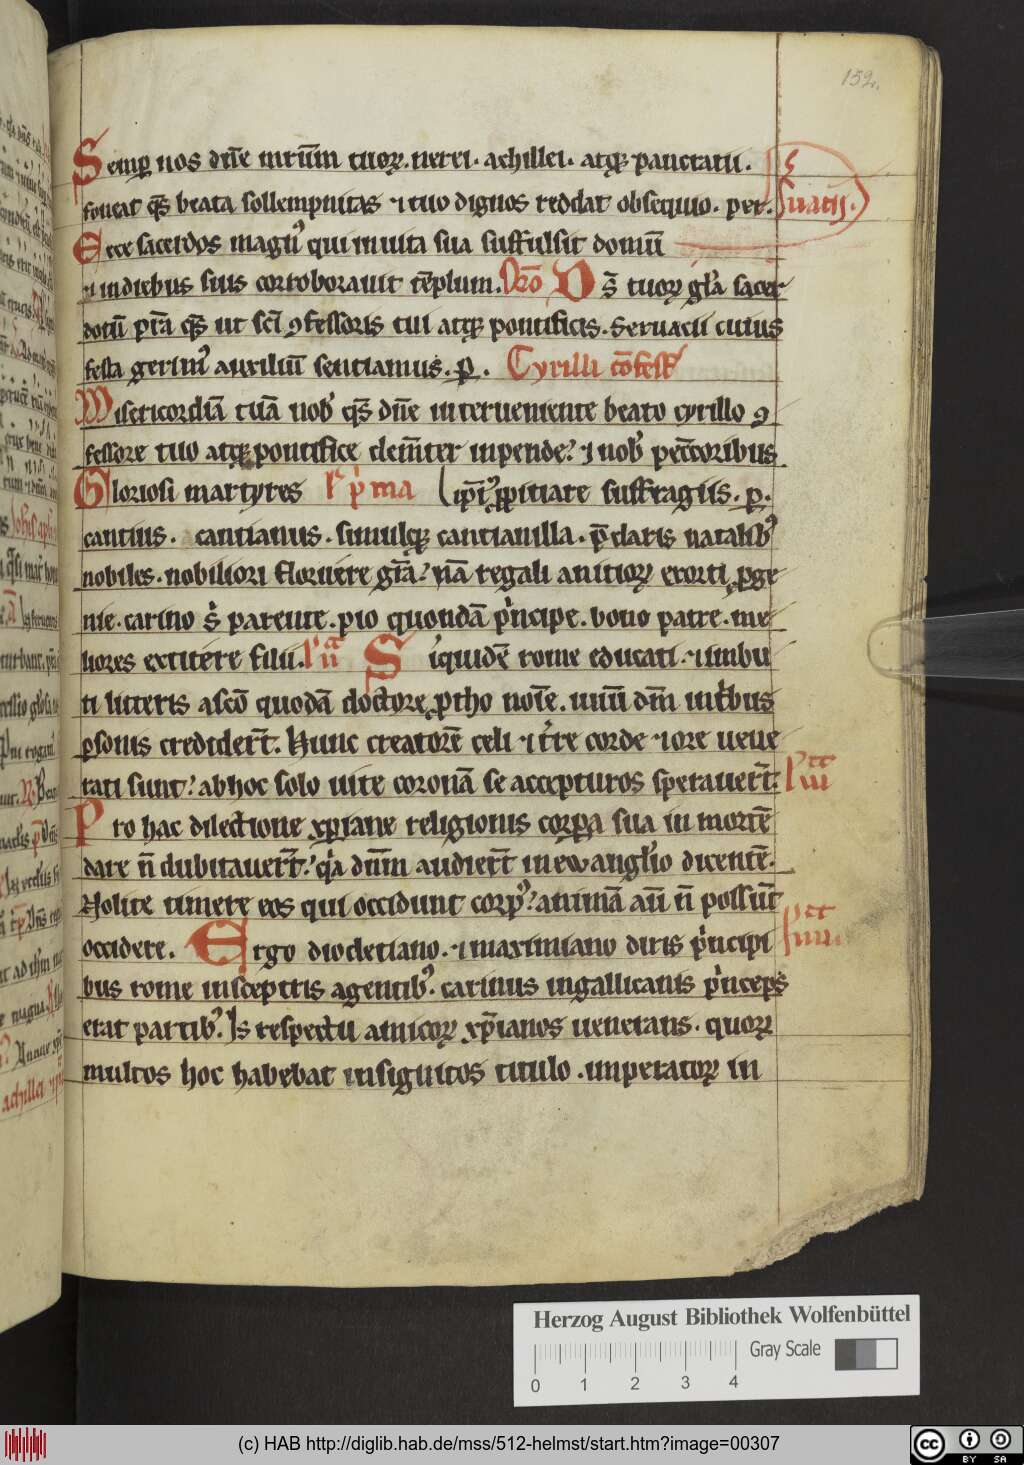 152.
Semꝑ nos dn̄e mr̄iūm tuoꝝ. nerei. achillei. atqꝫ pancratii.
foueat qs̄ beata sollempnitas ⁊ tuo dignos reddat obsequio. per. Suacii.
Ecce sacerdos magnꝰ qui in uita sua suffulsit domū
⁊ in diebus suis corroborauit tēplum. Lc̄o Ds̄ tuoꝝ gl̄a sacer
dotū p̄ta qs̄ ut sc̄i ꝯfessoris tui atqꝫ pontificis. Seruacii cuius
festa gerimꝰ auxiliū sentiamus. p. Cyrilli cōfess̄
Misericordiā tuā nob̄ qs̄ dn̄e interueniente beato cyrillo ꝯ
fessore tuo atqꝫ pontifice clemn̄ter inpende? ⁊ nob̄ pecc̄toribus
Gloriosi martyres l̄ p̄ma ip̄iꝰ ꝓpitiare suffragiis. p.
cantius. cantianus. simulqꝫ cantianilla. p̄claris natalibꝰ
nobiles. nobiliori floruere gr̄a? nā regali anitioꝝ exorti ꝓge
nie. carino s̄ parente. pio quondā p̄ncipe. bono patre. me
liores extitere filii. l̄ iia Siquidē rome educati. ⁊ imbu
ti litteris a sc̄o quodā doctore ꝓtho noīe. unū dm̄ in tr̄bus
ꝑsonis credider̄t. Hunc creatorē celi ⁊ tr̄re corde ⁊ ore uene
rati sunt? ab hoc solo uite coronā se accepturos sperauer̄t. l̄ iii
Pro hac dilectione xp̄iane religionis corꝑa sua in mortē
dare n̄ dubitauer̄t? qꝛa dn̄m audier̄t in ewanglio dicentē.
Nolite timere eos qui occidunt corpꝰ? animā aū n̄ possūt
occidere. Ergo diocletiano. ⁊ maximiano diris p̄ncipi l̄ iiii.
bus rome in sceptris agentibꝰ. carinus in gallicanis p̄nceps
erat partibꝰ. Is respectu amicoꝝ xp̄ianos uenerans. quoꝝ
multos hoc habebat insignitos titulo. imperatoꝝ in
Herzog August Bibliothek Wolfenbüttel
Gray Scale
0 1 2 3 4
(c) HAB http://diglib.hab.de/mss/512-helmst/start.htm?image=00307
cc BY SA